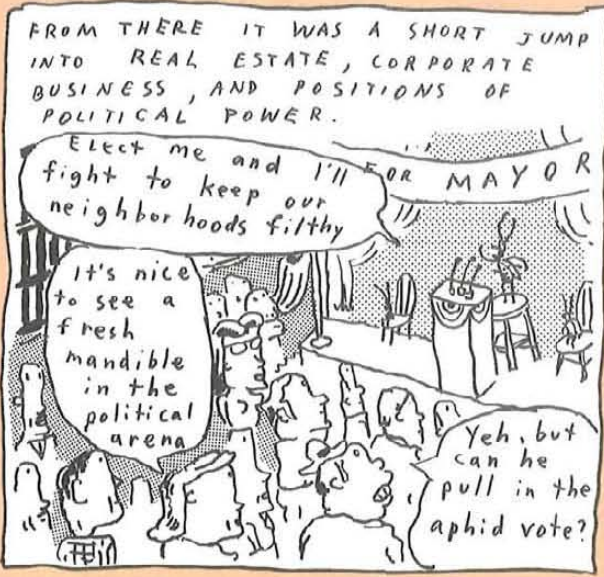 FROM THERE IT WAS A SHORT JUMP
INTO REAL ESTATE, CORPORATE
BUSINESS, AND POSITIONS OF
POLITICAL POWER.
Elect me and I'll
fight to keep our
neighborhoods filthy
FOR MAYOR
It's nice
to see a
fresh
mandible
in the
political
arena
Yeh, but
can he
pull in the
aphid vote?